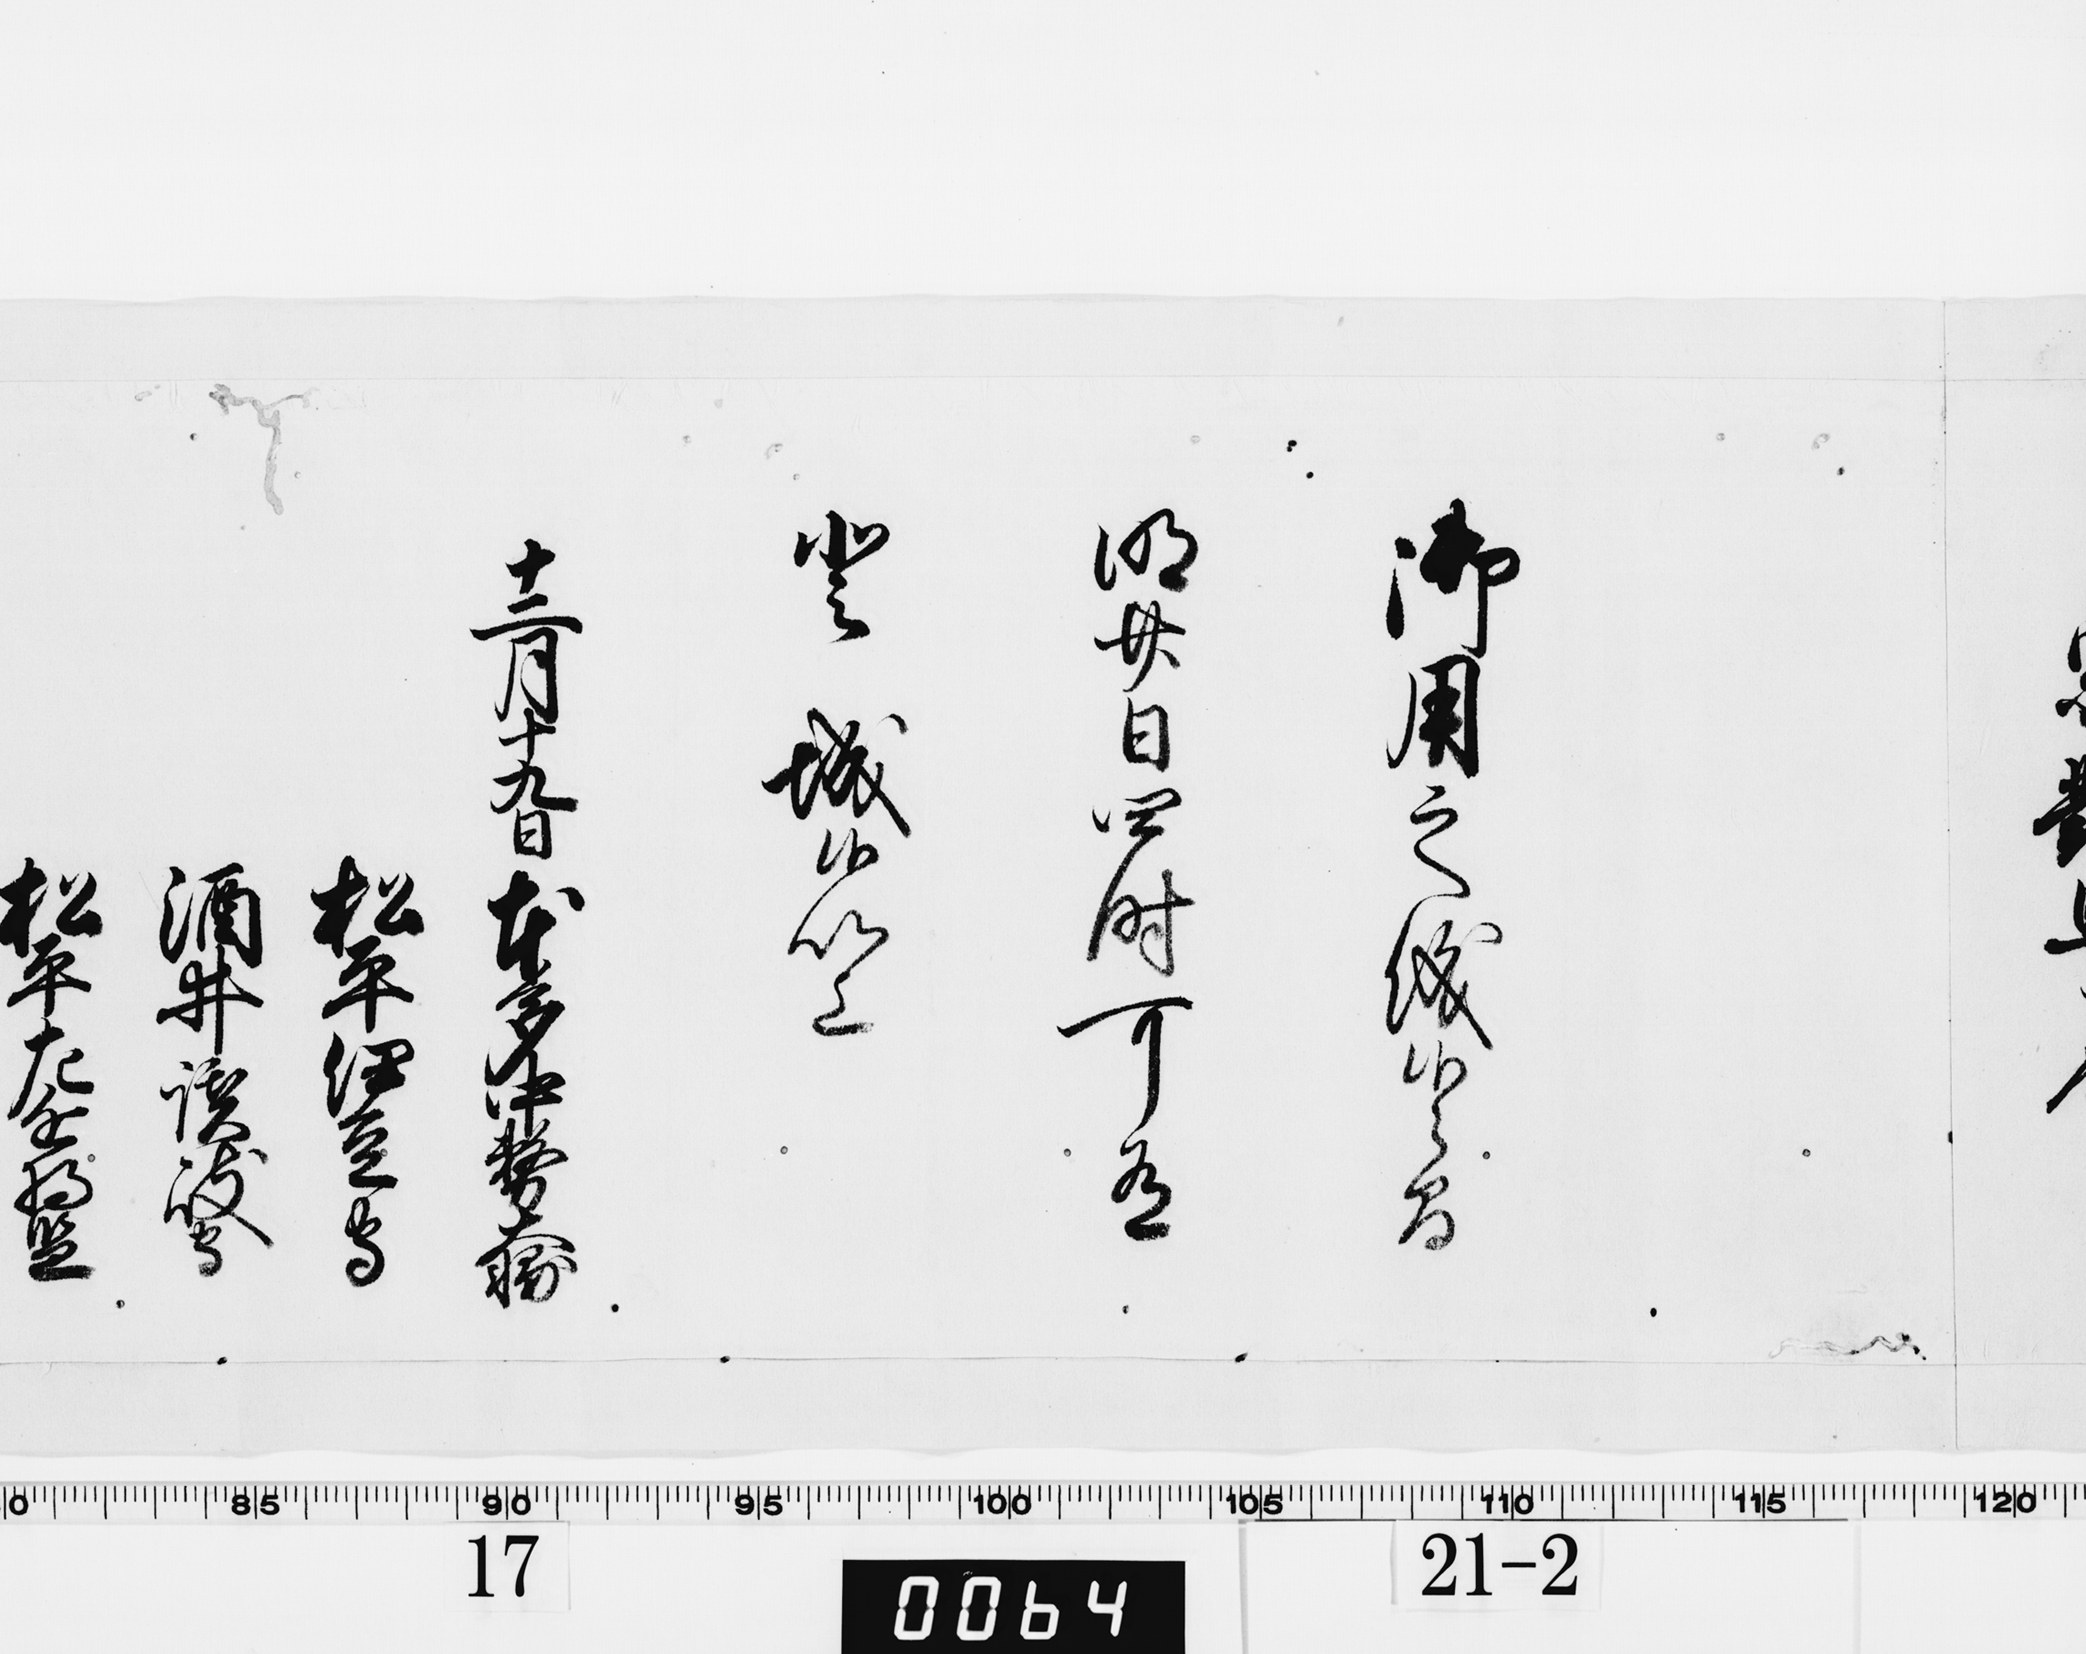 御用之儀候間
明廿日四時可有
登　城候以上
十二月十九日 本多中務大輔
松平伊豆守
酒井讃岐守
松平左近将監
80 85 90 95 100 105 110 115 120
17
21-2
0064